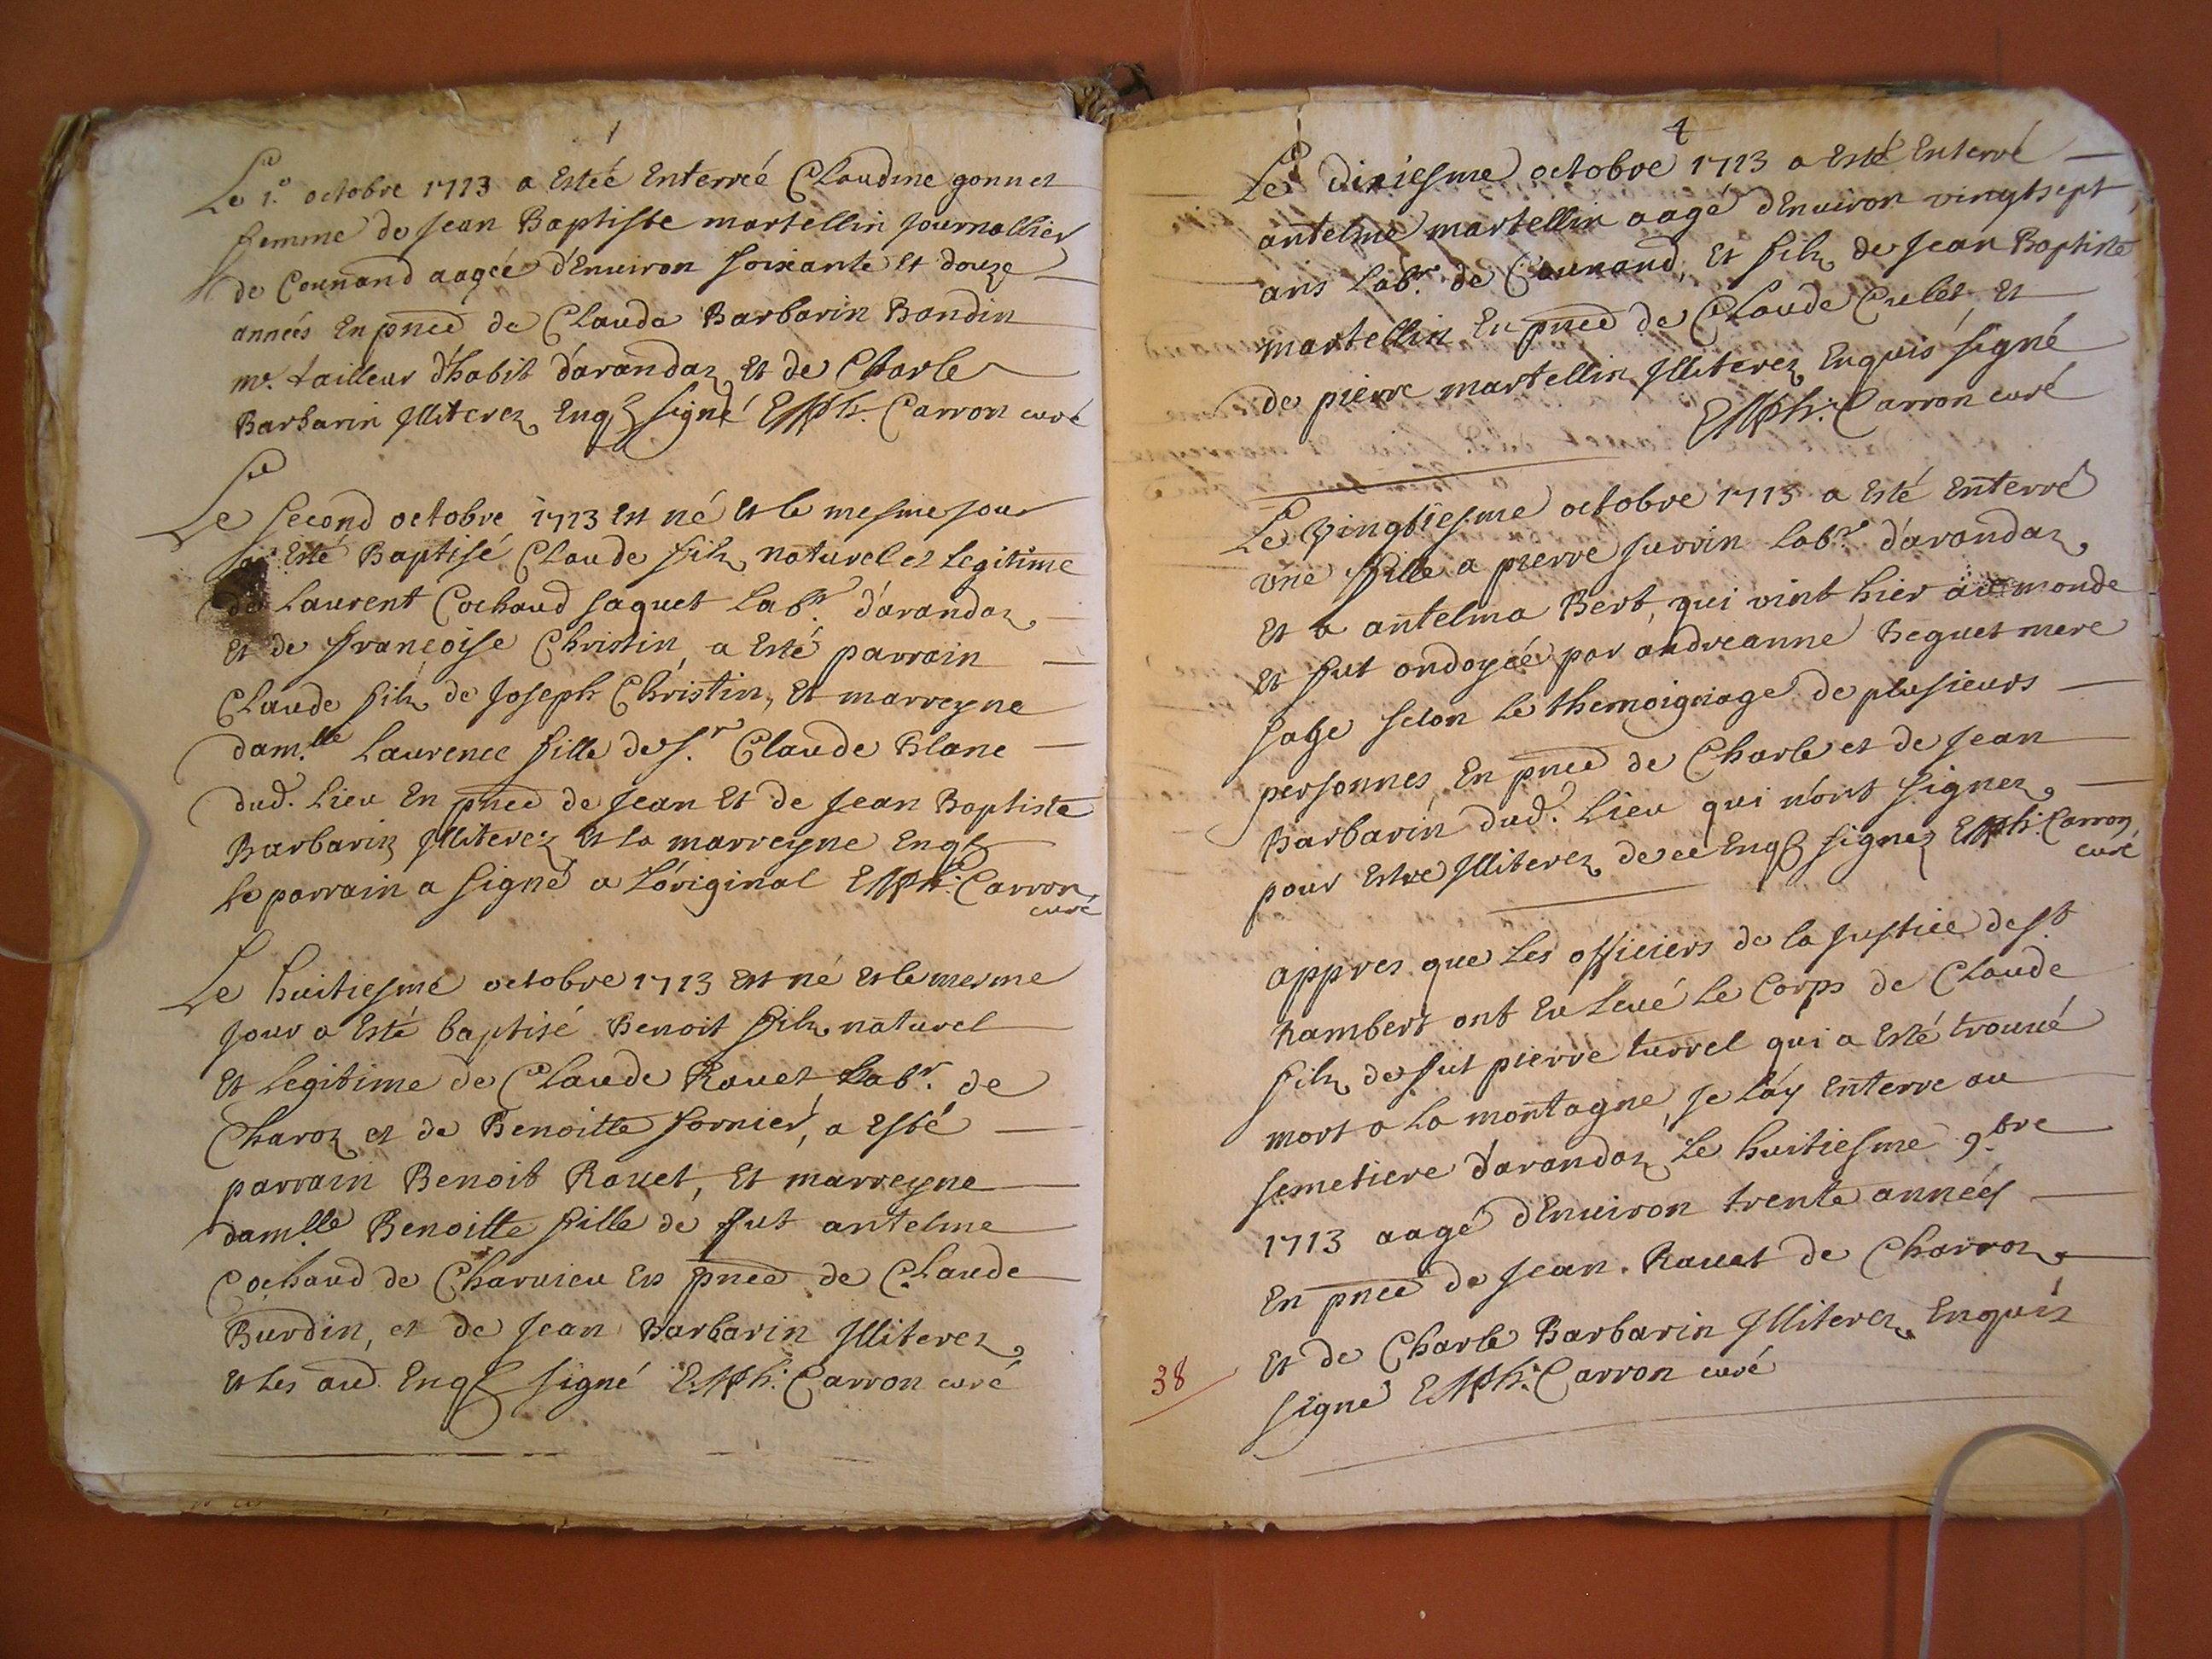 Le 1.º octobre 1713 a Esteé Enterreé Claudine gonnet
femme de Jean Baptiste martellin Journallier
de Counand aageé d'Enuiron soixante et douze
années En pnce de Claude Barbarin Bondin
me. tailleur d'habit d'arandaz et de Charle
Barbarin Illiterez Enqs signé E Mph: Carron curé
Le second octobre 1713 Est né et le mesme jour
Esté Baptisé Claude filz naturel et legitime
de Laurent Cochaud saquet labr. d'arandaz
et de françoise Christin, a Esté parrain
Claude filz de Joseph Christin, et marreyne
damlle. Laurence fille de sr. Claude Blanc
dud. lieu En pnce de Jean et de Jean Baptiste
Barbarin Illiterez et la marreyne Enqs
le parrain a signé a l'original E Mph: Carron
curé
Le huitiesme octobre 1713 Est né et le mesme
jour a Esté baptisé Benoit filz naturel
et legitime de Claude Rauet labr. de
Charoz et de Benoitte fornier, a Esté
parrain Benoit Rauet, et marreyne
damlle. Benoitte fille de fut antelme
Cochaud de Charuieu En pnce de Claude
Burdin, et de Jean Barbarin Illiterez
et les aud. Enqs signé E Mph: Carron curé
4
Le dixiesme octobre 1713 a Esté Enterré
antelme martellin aagé d'Enuiron vingtsept
ans labr. de Counand, et filz de Jean Baptiste
martellin En pnce de Claude Culet, et
de pierre martellin Illiterez Enquis signé
E Mph: Carron curé
Le vingtiesme octobre 1713 a Esté Enterré
vne fille a pierre Jurrin labr. d'arandaz
et a antelma Bert, qui vint hier au monde
et fut ondoyeé par andreanne Beguet mere
sage selon le themoignage de plusieurs
personnes En pnce de Charle et de Jean
Barbarin dud. lieu qui n'ont signez
pour Estre Illiterez de ce Enqs signez E Mph: Carron
curé
appres que les officiers de la Justice de st
Rambert ont En leué le Corps de Claude
filz de fut pierre turrel qui a Esté trouué
mort a la montagne, Je l'ay Enterre au
semetiere d'arandaz le huitiesme 9.bre
1713 aagé d'Enuiron trente années
En pnce de Jean Rauet de Charroz
et de Charle Barbarin Illiterez Enquis
signé E Mph: Carron curé
38